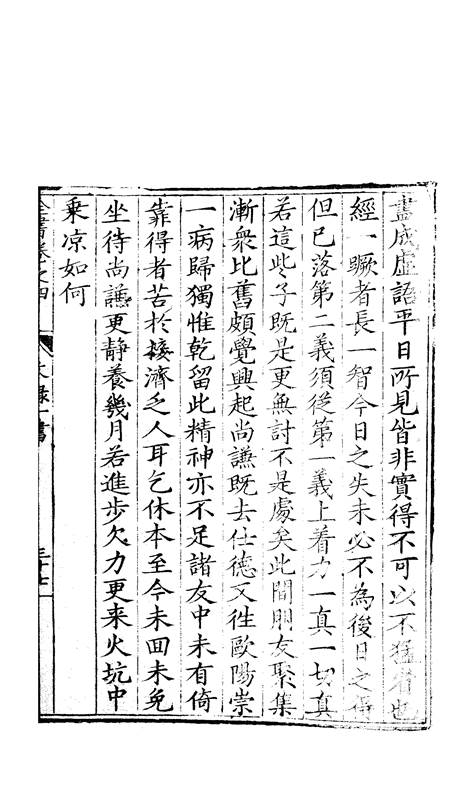 盡成虛語平日所見皆非實得不可以不猛省也
經一蹶者長一智今日之失未必不為後日之得
但已落第二義須從第一義上着力一真一切真
若這些子既是更無討不是處矣此間朋友聚集
漸衆比舊頗覺興起尚謙既去仕德又徃歐陽崇
一病歸獨惟乾留此精神亦不足諸友中未有倚
靠得者苦於接濟乏人耳乞休本至今未囬未免
坐待尚謙更静養幾月若進步欠力更来火坑中
乗凉如何
全書卷之四
文錄一書
三十七